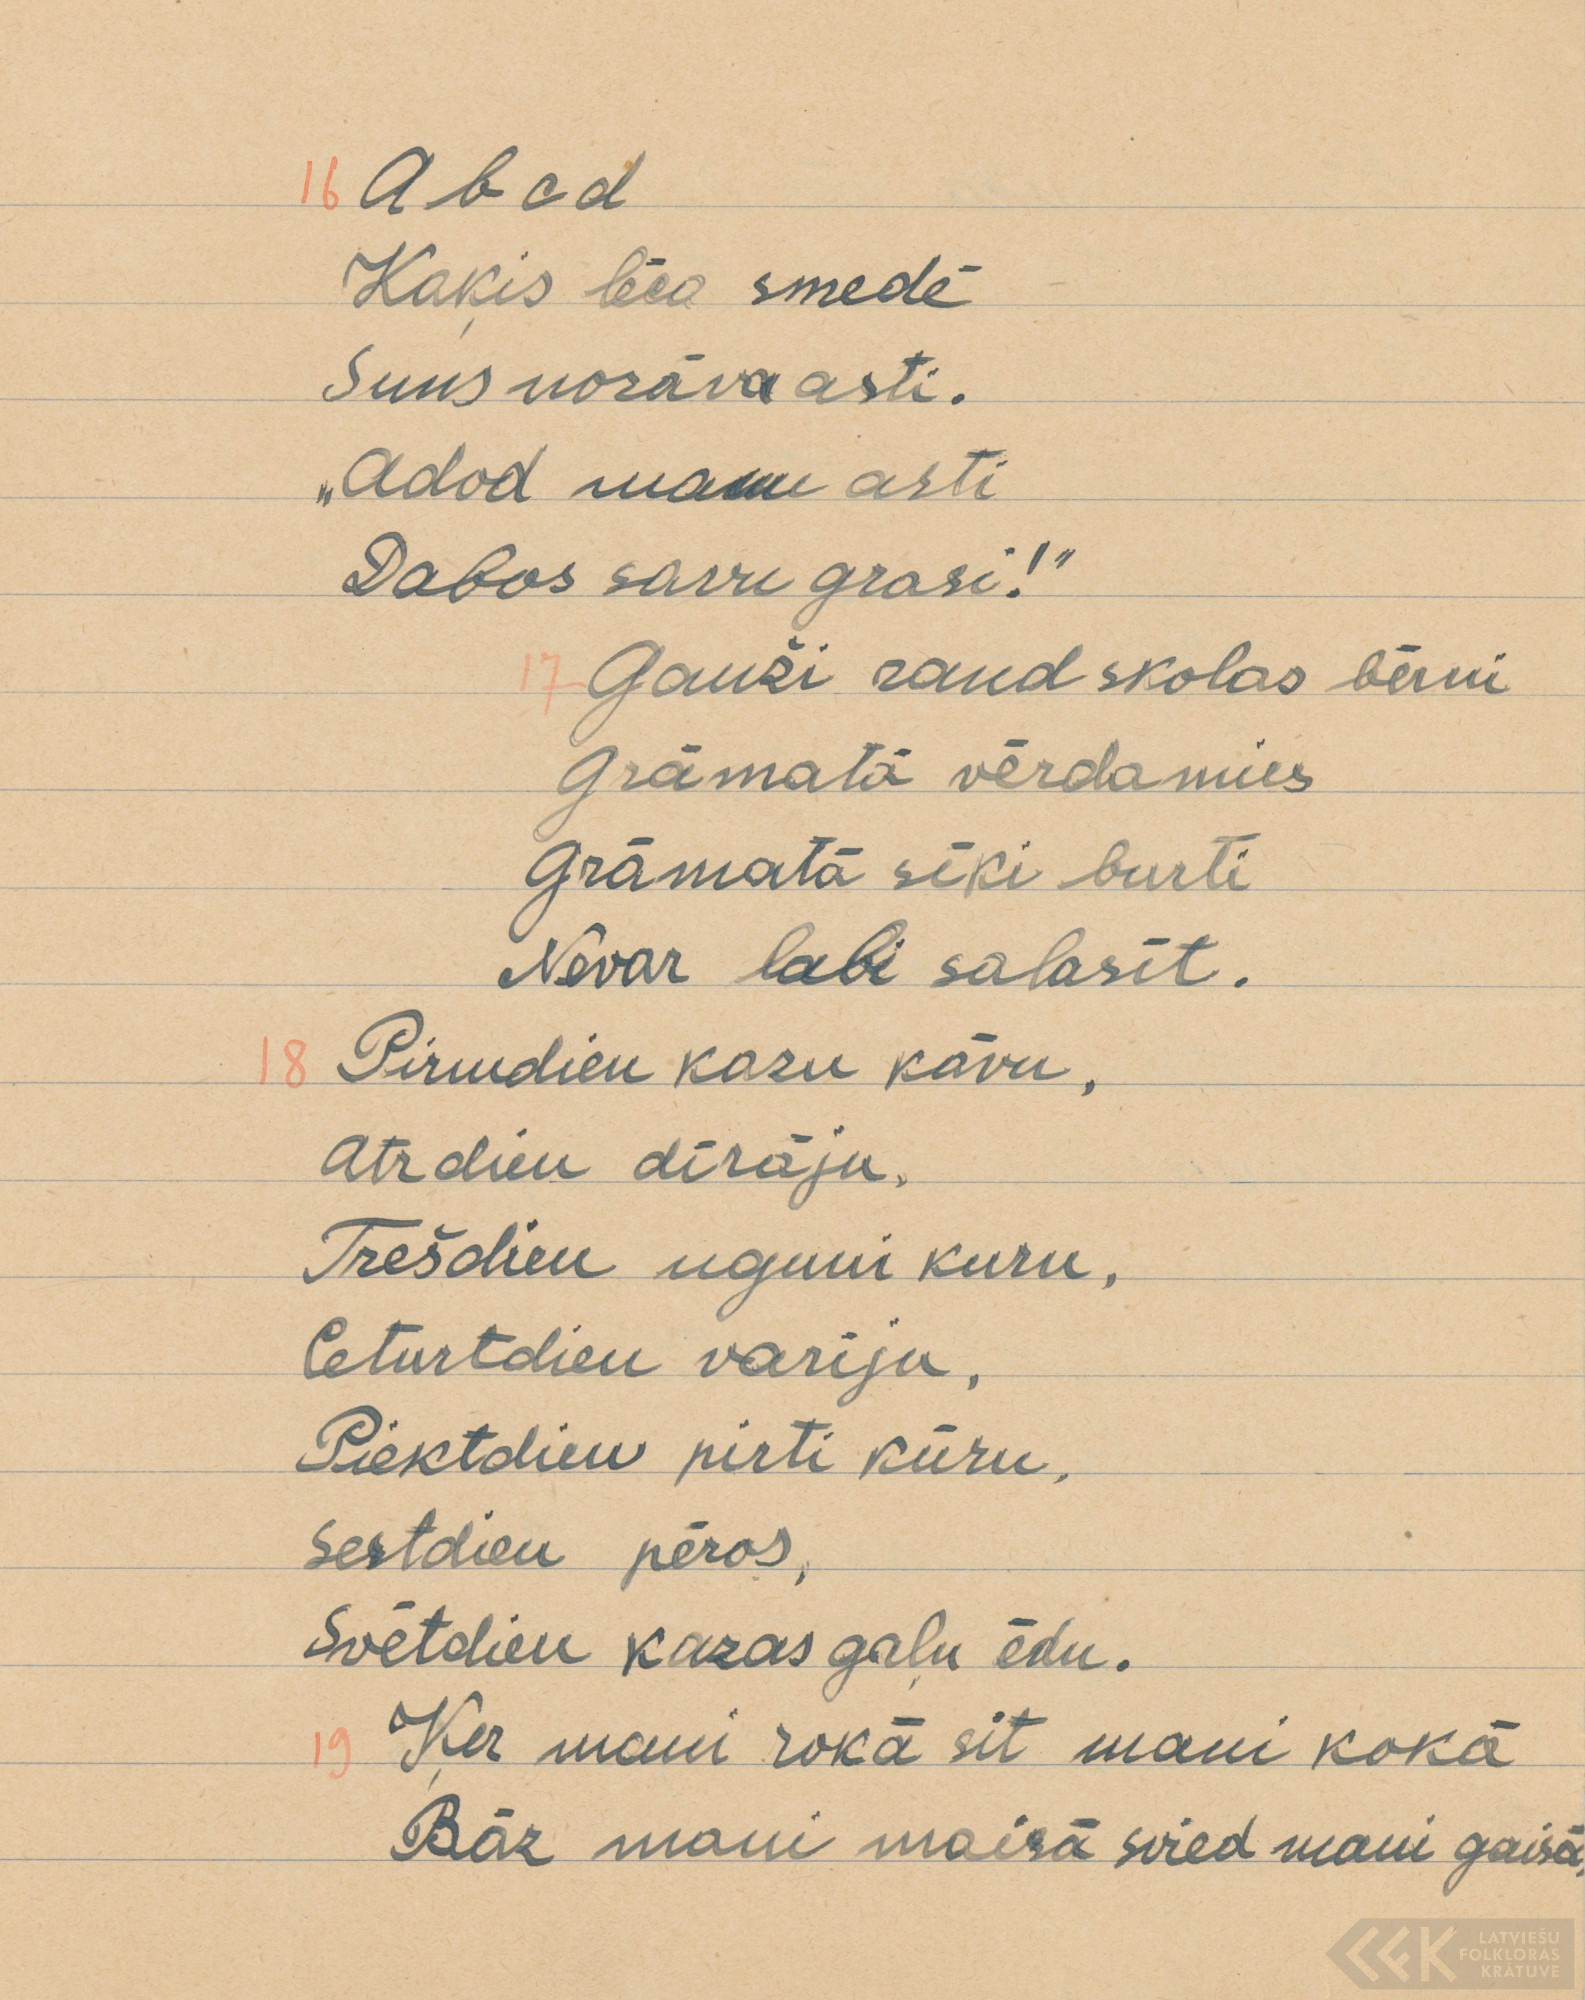 16 A b c d
Kaķis lēca smedē
Suns norāva asti.
„Adod manu asti
Dabos savu grasi!"
17 Gauži raud skolas bērni
Grāmatā vērdamies
Grāmatā sīki burti
Nevar labi salasīt.
18 Pirmdien kazu kāvu,
Atrdien dīrāju,
Trešdien uguni kuru,
Ceturtdien varīju,
Piektdien pirti kūru,
Sestdien pēros,
Svētdien kazas gaļu ēdu.
19 Ķer mani rokā sit mani kokā
Bāz mani maisā svied mani gaisā,
LATVIEŠU
FOLKLORAS
KRĀTUVE